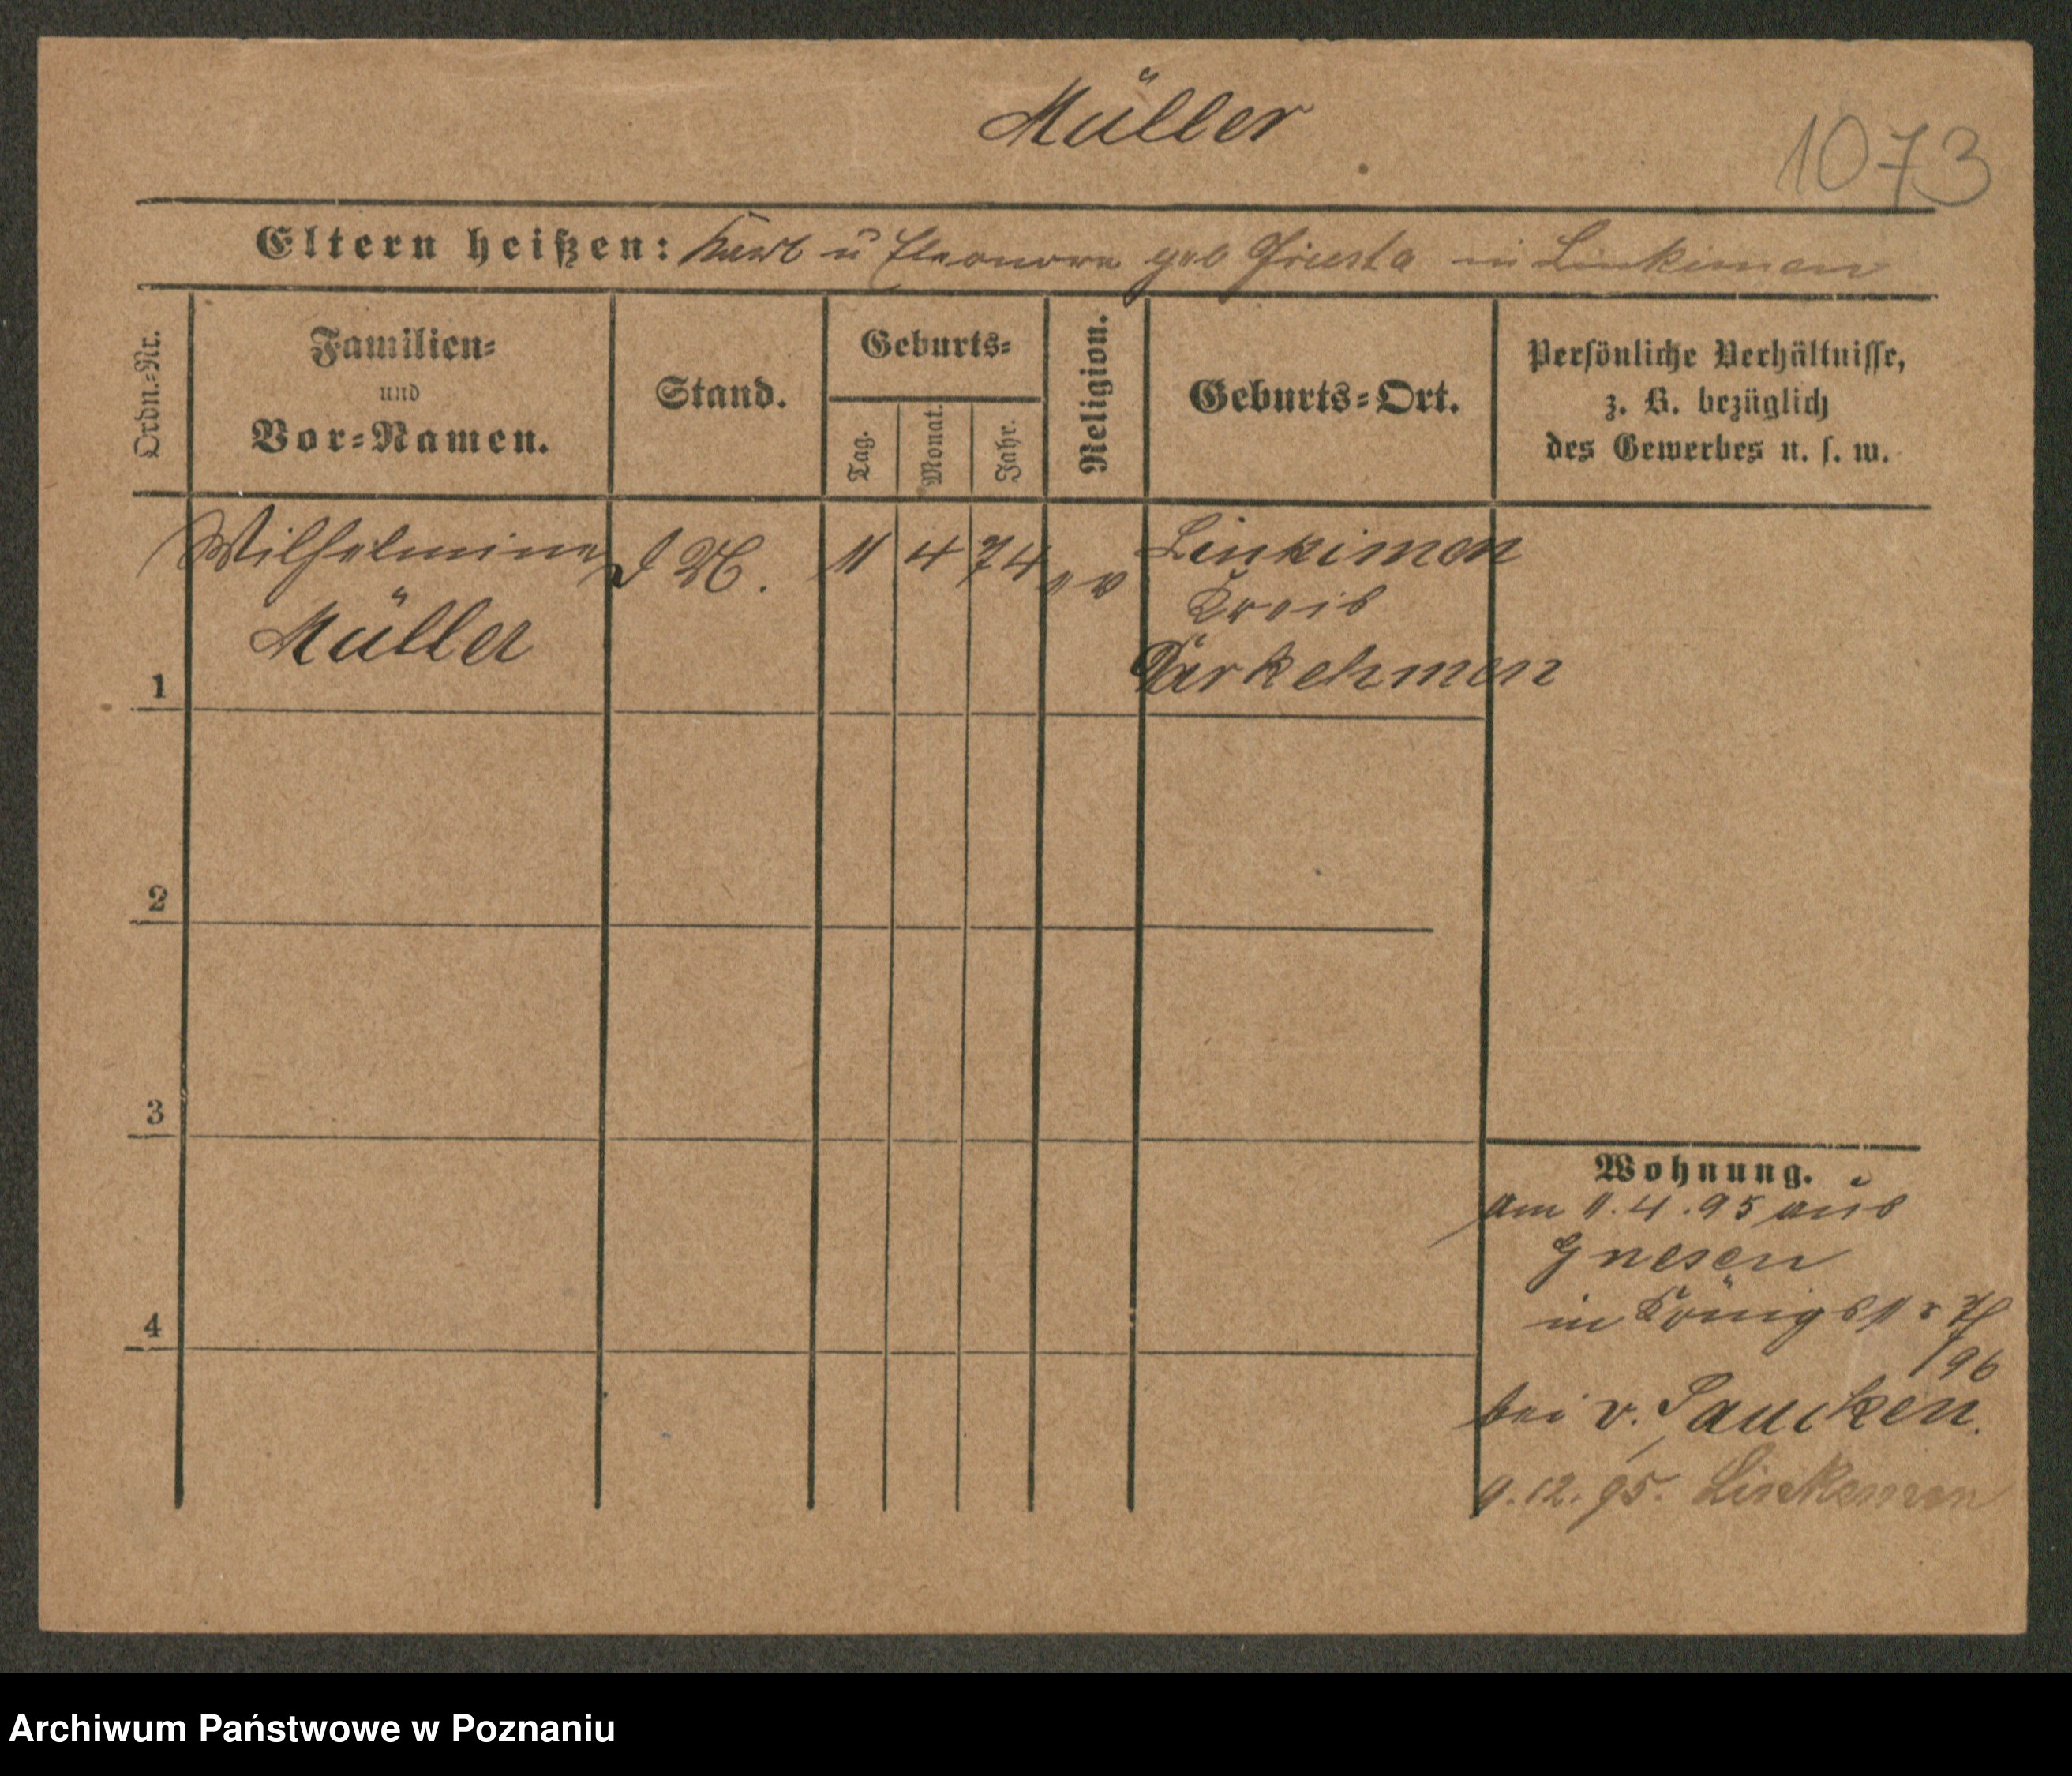 Müller
1073
Eltern heißen: Karl u Eleonore geb in Linkimen
Ordn.-Nr.
Familien-
und
Vor-Namen.
Stand.
Geburts-
Tag.
Monat.
Jahr.
Religion.
Geburts-Ort.
Persönliche Verhältnisse,
z. B. bezüglich
des Gewerbes u. s. w.
1 Wilhelmine
Müller
11 4 74 ev
Linkimen
Kreis
Darkehmen
2
3
4
Wohnung.
am 11.4.95 aus
Gnesen
in
96
bei v. Saucken.
9.12.95. Linkemen
Archiwum Państwowe w Poznaniu